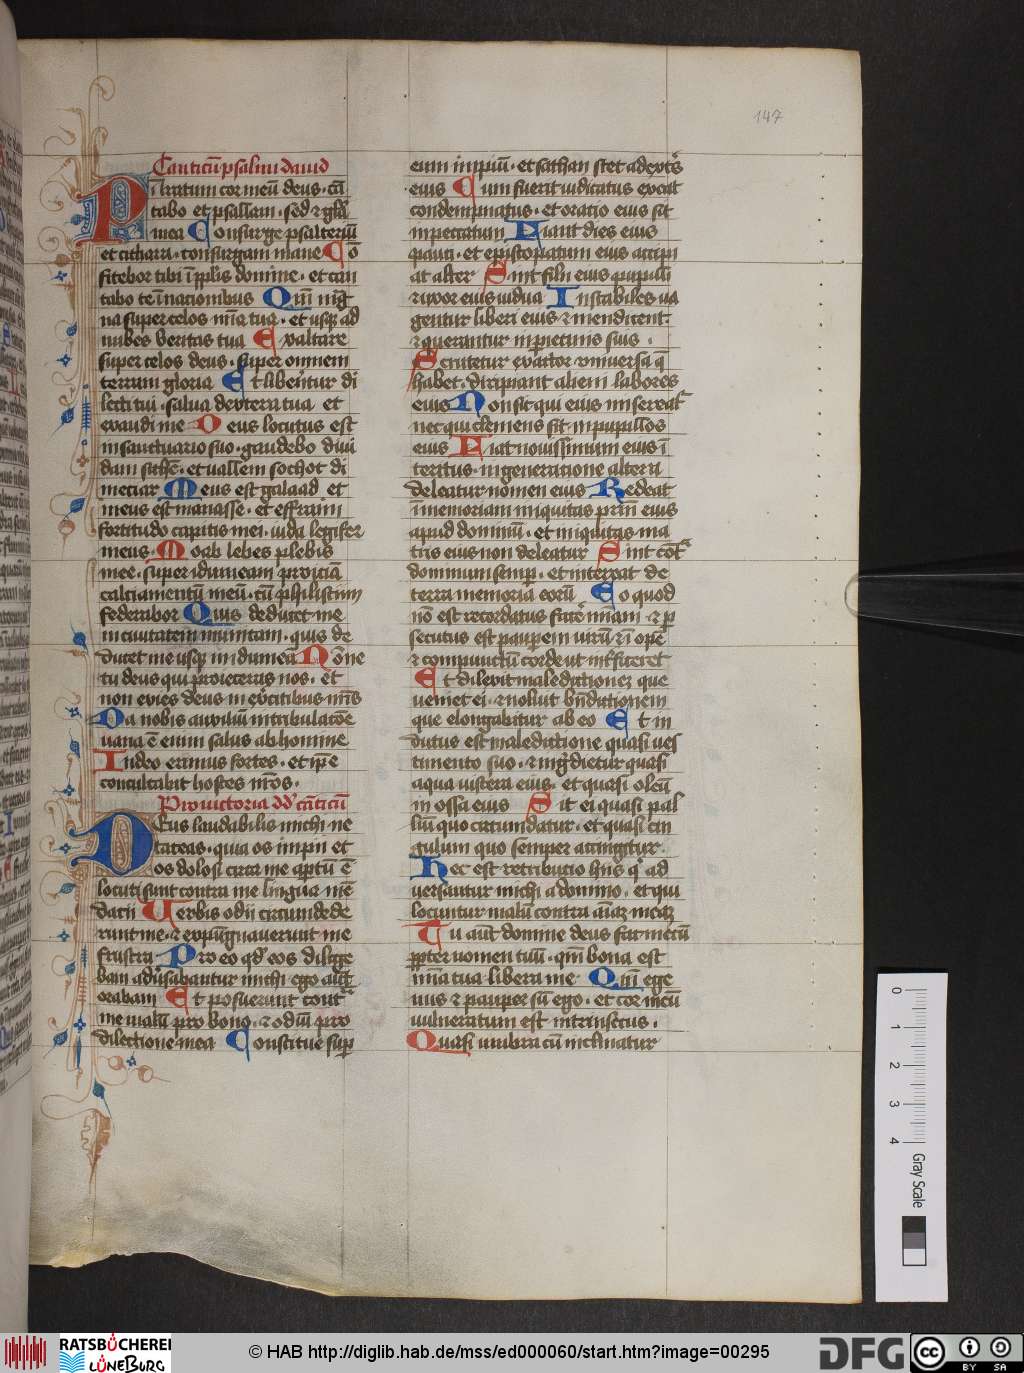 147
Canticū psalmi dauid
Paratum cor meū deus · cā
tabo et psallam · sed ⁊ glīa
mea Consurge psalteriū
et cithara · consurgam mane Cō
fitebor tibi ī pplis domine · et can
tabo te ī nacionibus Qm̄ mag
na super celos mīa tua · et usqꝫ ad
nubes veritas tua Exaltare
super celos deus · super omnem
terram gloria Et liberentur di
lecti tui · salua dextera tua et
exaudi me Deus locutus est
in sanctuario suo · gaudebo diui
dam sichē · et uallem sochot di
meciar Meus est galaad et
meus est manasse · et effraim
fortitudo capitis mei · iuda legifer
meus · Moab lebes pelebis
mee · super idumeam proiciā
calciamentū meū · cū philistium
federabor Quis deducet me
in ciuitatem munitam · quis de
ducet me usqꝫ in idumeā Nōne
tu deus qui proieceras nos · et
non exies deus in exercitibus nr̄is
Da nobis auxiliū in tribulacōe
uana ē enim salus ab homine
In deo erimus fortes · et ip̄e
conculcabit hostes nr̄os ·
Pro uictoria dd̄ cāticū
Deus laudabilis michi ne
taceas · quia os impii et
os dolosi contra me apertū ē
locuti sunt contra me lingua mē
dacii Uerbis odii circumdede
runt me · ⁊ expugnauerunt me
frustra Pro eo qd̄ eos dilige
bam aduersabantur michi · ego aut
orabam Et posuerunt contra
me malū pro bono · ⁊ odiū pro
dilectione mea Constitue sup̄
eum impiū · et sathan stet a dextr̄s
eius Cum fuerit iudicatus exeat
condempnatus · et oratio eius sit
in peccatum Fiant dies eius
pauci · et episcopatum eius accipi
at alter Sint filii eius pupilli
⁊ uxor eius uidua Instabiles ua
gentur liberi eius ⁊ mendicent
⁊ querantur in parietinis suis ·
Scrutetur exactor uniuersa q̄
habet · diripiant alieni labores
eius Non sit qui eius misereatr̄
nec qui clemens sit in pupillos
eius Fiat nouissimum eius ī
teritus · in generatione altera
deleatur nomen eius Redeat
ī memoriam iniquitas patrū eius
apud dominū · et iniquitas ma
tris eius non deleatur Sint cōtr̄
dominum semp̄ · et intereat de
terra memoria eorū Eo quod
nō est recordatus facē m̄iam · ⁊ p̄
secutus est paup̄em uirū ⁊ ī opē
⁊ compunctū corde ut inf̄ficeret
Et dilexit maledictionez que
ueniet ei · ⁊ noluit bn̄dictionem
que elongabitur ab eo Et in
dutus est maledictione quasi ues
timento suo · ⁊ ingr̄dietur quasi
aqua uiscera eius · et quasi oleū
in ossa eius Sit ei quasi pal
liū quo circumdatur · et quasi cin
gulum quo semper accingitur ·
Hec est retributio hiis q̄ ad
uersantur michi a domino · et qui
locuntur malū contra aīaꝫ meaꝫ
Tu aūt domine deus fac mecum
propter nomen tuū · qm̄ bona est
mīa tua libera me Qm̄ ege
nus ⁊ pauper sū ego · et cor meū
uulneratum est intrinsecus ·
Quasi umbra cū inclinatur
0 1 2 3 4
Gray Scale
RATSBÜCHEREI
LÜNEBURG
© HAB http://diglib.hab.de/mss/ed000060/start.htm?image=00295
DFG
cc BY SA